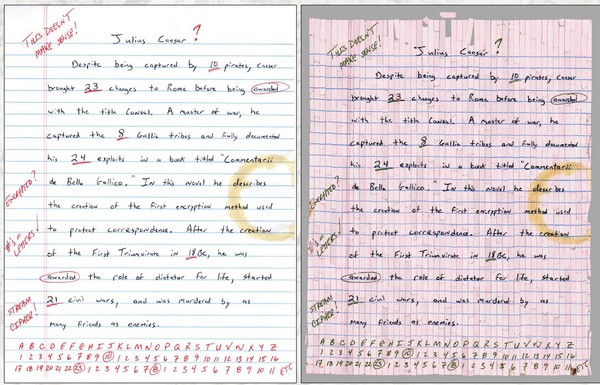 THIS DOESN'T
MAKE SENSE!
Julius Caesar ?
Despite being captured by 10 pirates, Caesar
brought 23 changes to Rome before being awarded
with the title Consul. A master of war, he
captured the 8 Gallic tribes and fully documented
his 24 exploits in a book titled "Commentarii
de Bello Gallico." In this novel he describes
the creation of the first encryption method used
to protect correspondence. After the creation
of the First Triumvirate in 18BC, he was
awarded the role of dictator for life, started
21 civil wars, and was murdered by as
many friends as enemies.
ENCRYPTED?
#'s =
LETTERS!
STREAM
CIPHER!
A B C D E F G H I J K L M N O P Q R S T U V W X Y Z
1 2 3 4 5 6 7 8 9 10 1 2 3 4 5 6 7 8 9 10 11 12 13 14 15 16
17 18 19 20 21 22 23 1 2 3 4 5 6 7 8 1 2 3 4 5 6 7 8 9 10 11 ETC
THIS DOESN'T
MAKE SENSE!
Julius Caesar ?
Despite being captured by 10 pirates, Caesar
brought 23 changes to Rome before being awarded
with the title Consul. A master of war, he
captured the 8 Gallic tribes and fully documented
his 24 exploits in a book titled "Commentarii
de Bello Gallico." In this novel he describes
the creation of the first encryption method used
to protect correspondence. After the creation
of the First Triumvirate in 18BC, he was
awarded the role of dictator for life, started
21 civil wars, and was murdered by as
many friends as enemies.
ENCRYPTED?
#'s =
LETTERS!
STREAM
CIPHER!
A B C D E F G H I J K L M N O P Q R S T U V W X Y Z
1 2 3 4 5 6 7 8 9 10 1 2 3 4 5 6 7 8 9 10 11 12 13 14 15 16
17 18 19 20 21 22 23 1 2 3 4 5 6 7 8 1 2 3 4 5 6 7 8 9 10 11 ETC